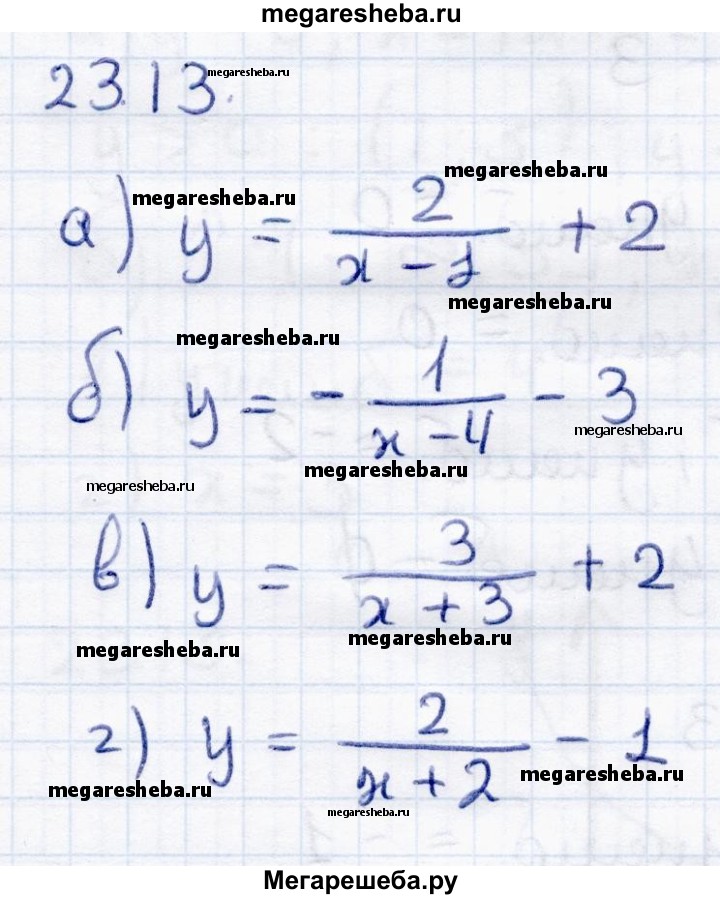 megaresheba.ru
23.13. megaresheba.ru
megaresheba.ru
а) y = 2/(x - 1) + 2
megaresheba.ru
megaresheba.ru
megaresheba.ru
б) y = - 1/(x - 4) - 3
megaresheba.ru
megaresheba.ru
megaresheba.ru
в) y = 3/(x + 3) + 2
megaresheba.ru
megaresheba.ru
г) y = 2/(x + 2) - 1
megaresheba.ru
megaresheba.ru
megaresheba.ru
Мегарешеба.ру